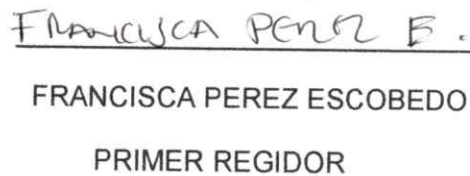 FRANCISCA PEREZ E.
FRANCISCA PEREZ ESCOBEDO
PRIMER REGIDOR